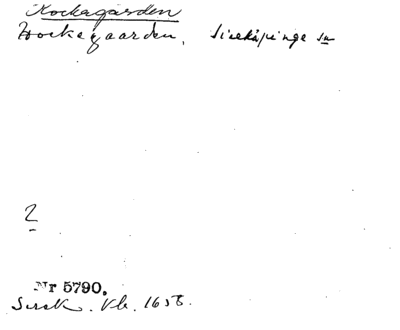 Kockagården
Kockegaarden, Sireköpinge sn
2
Nr 5790.
Sirek. Kb. 1658.